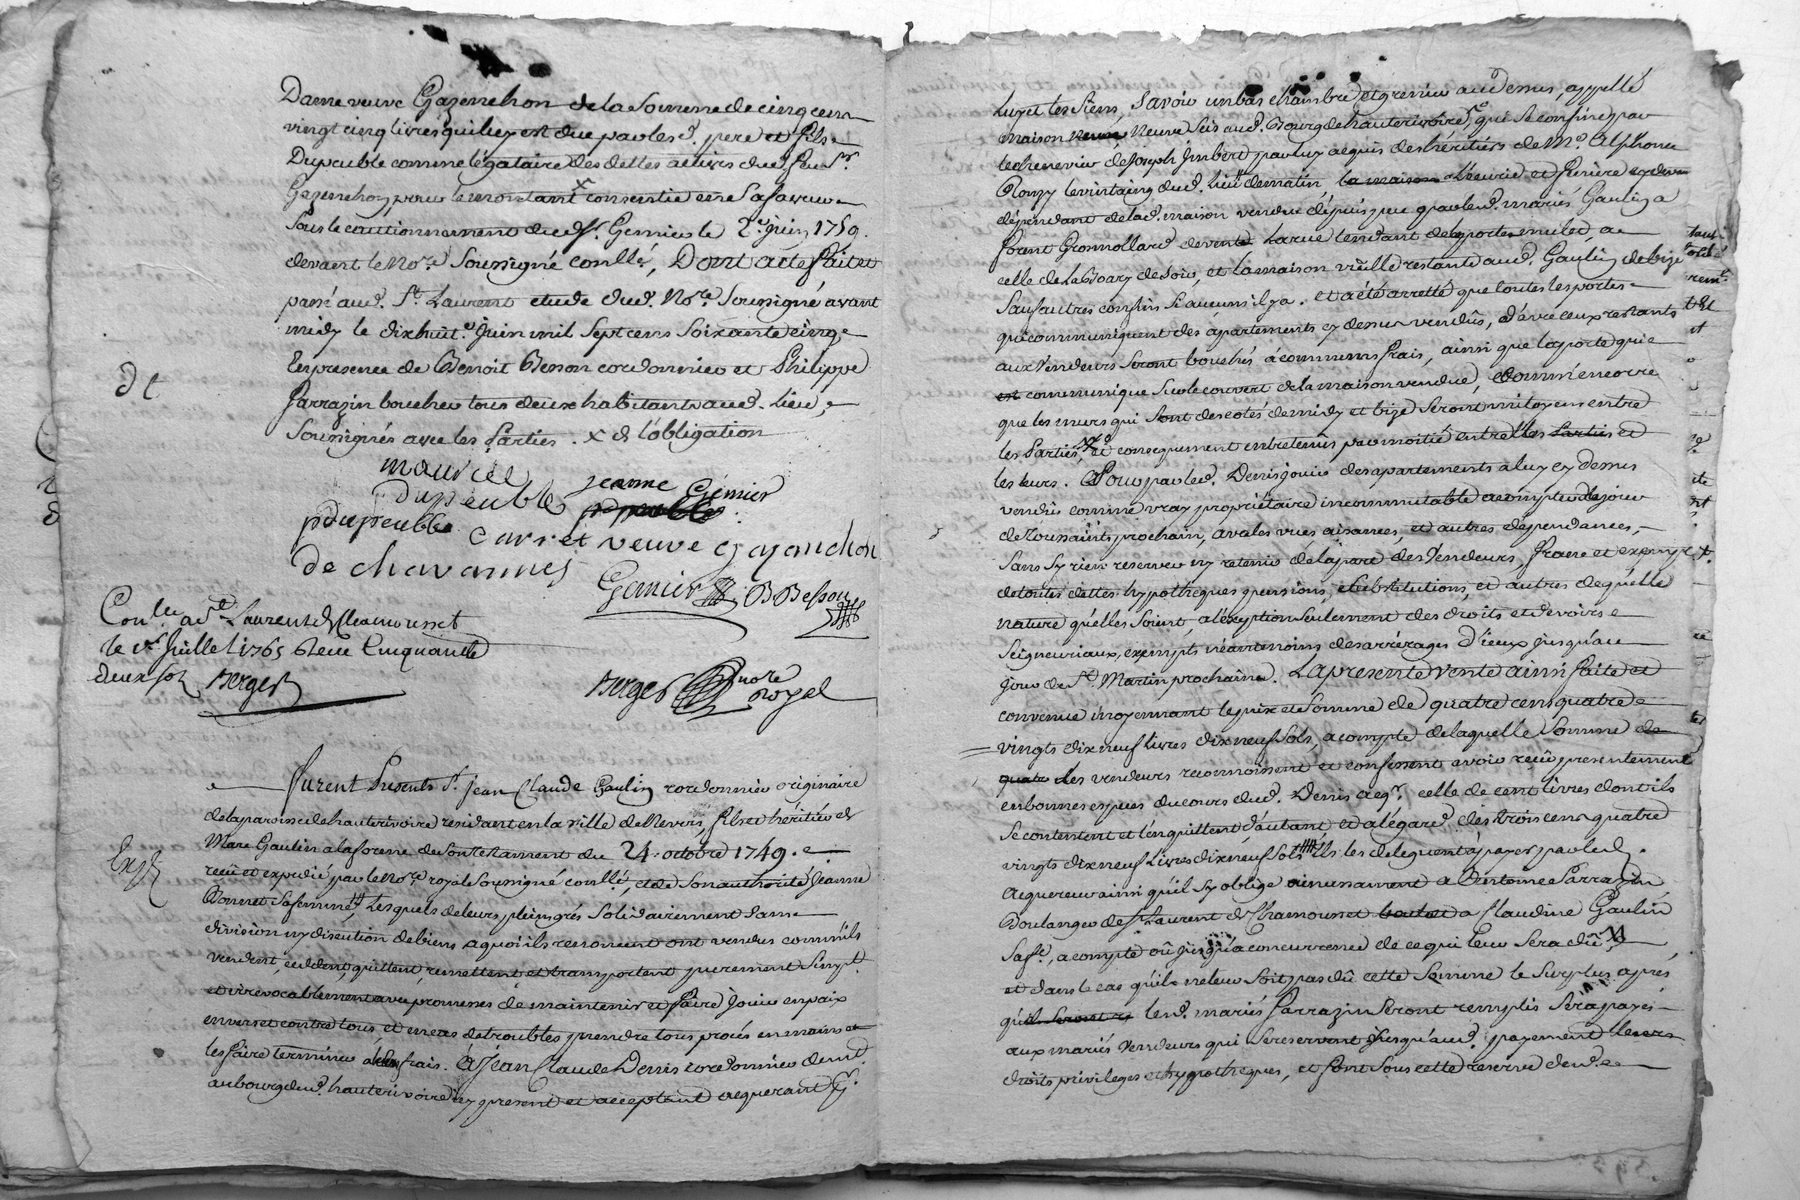 Dame veuve Gazenchon de la Somme de cinq cens
vingt cinq livres qui luy est due par les d. pere et fils
Dupeuble comme légataire des dettes actives dud. feu Sr.
Gazenchon, pour le montant x consentie en sa faveur
Sous le cautionnement dud. Sr. Gemier le 2e. juin 1759.
devant le Nore. Soussigné conllé, Dont acte fait et
passé aud. St. Laurent etude dud. Nore. Soussigné avant
midy le dix huite. Juin mil Sept cens Soixante cinq
En presence de Benoit Besson cordonnier et Philippe
Sarrazin boucher tous deux habitants aud. lieu,
Soussignés avec les Parties. x de l'obligation
maurice
Dupeuble jeanne Gemier
pdupeuble Carret veuve gazanchon
de chavannes
Gemier BBesson
Conllé. a St. Laurent de Chamousset
le 1er Juillet 1765 Reçu Cinquante
deux sols Berger
Berger nore royal
Exp
Furent Presents Sr. Jean Claude Gaulin cordonnier originaire
de la paroisse de hauterivoire residant en la ville de Nevers, fils et héritier de
Marc Gaulin a la forme de Son testament du 24 octobre 1749.
reçu et expedié par le Nore. royal Soussigné conllé, et de Son authorité Jeanne
Bonnet Sa femme, Lesquels de leurs pleins grés Solidairement Sans
division ny discution de biens a quoi ils renoncent ont vendus comm'ils
vendent, cedent, quittent, remettent et transportent purement Simplt.
et irrévocablement avec promesses de maintenir et faire jouir en paix
envers et contre tous, et en cas de troubles prendre tous procés en mains et
les faire terminer a leurs frais. A Jean Claude Denis cordonnier demt.
au bourg dud. hauterivoire icy present et acceptant acquerant pr.
luy et les Siens, Savoir un bas chambre et grenier au dessus, appellé
maison Neuve Scis aud. Bourg de hauterivoire, qui Se confine par
le chenevier de Joseph Imbert par luy acquis des héritiers de Me. Alphonse
dud. lieu de matin, la maison Ecurie et feniere
dépendant de lad. maison vendue dépuis peu par led. mariés Gaulin a
Gromollard de vent, la rue tendant de
celle de La Boary de Soir, et la maison vieille restante aud. Gaulin de bize
Sauf autres confins Si aucuns il y a. Et a été arretté que toutes les portes
qui communiquent des apartements cy dessus vendûs, d'avec ceux restants
aux Vendeurs Seront bouchés a communs frais, ainsi que la porte qui
communique Sur le couvert de la maison vendue, comm'encore
que les murs qui Sont des cotés de midy et bize Seront mitoyens entre
les Parties, et consequemment entretenus par moitié entr'elles et
les leurs. Pour par led. Denis jouir des apartements a luy cy dessus
vendûs comme vray proprietaire incommutable a compter du jour
de Toussaints prochain, avec les vües, aisances, et autres dépendances,
Sans S'y rien reserver ny retenir de la part des Vendeurs, franc et exempt
de toutes dettes hypotheques pensions, Substitutions, et autres de quelle
nature qu'elles Soient, a l'éxeption Seulement des droits et devoirs
Seigneuriaux, exempts néantmoins des arrérages d'iceux jusqu'au
jour de St. Martin prochaine. La presente vente ainsi faite et
convenue moyennant le prix et Somme de quatre cens quatre
vingts dix neuf livres dix neuf Sols, a compte de laquelle Somme
les vendeurs reconnoissent et confessent avoir reçû presentement
en bonnes especes du cours dud. Denis acqr. celle de cent livres dont ils
Se contentent et l'en quittent d'autant, et a l'égard des trois cens quatre
vingts dix neuf Livres dix neuf Sols ils les deleguent a payer par led.
acquereur ainsi qu'il S'y oblige a Antoine Sarrazin
Boulanger de St. Laurent de Chamousset a Claudine Gaulin
Sa fe., a compte oû jusqu'a concurrence de ce qui leur Sera dû,
et dans le cas qu'il ne leur Soit pas dû cette Somme le Surplus après
que led. mariés Sarrazin Seront remplis Sera payé
aux mariés vendeurs qui Se reservent jusqu'aud. payement leurs
droits privileges et hypotheques, et font Sous cette reserve